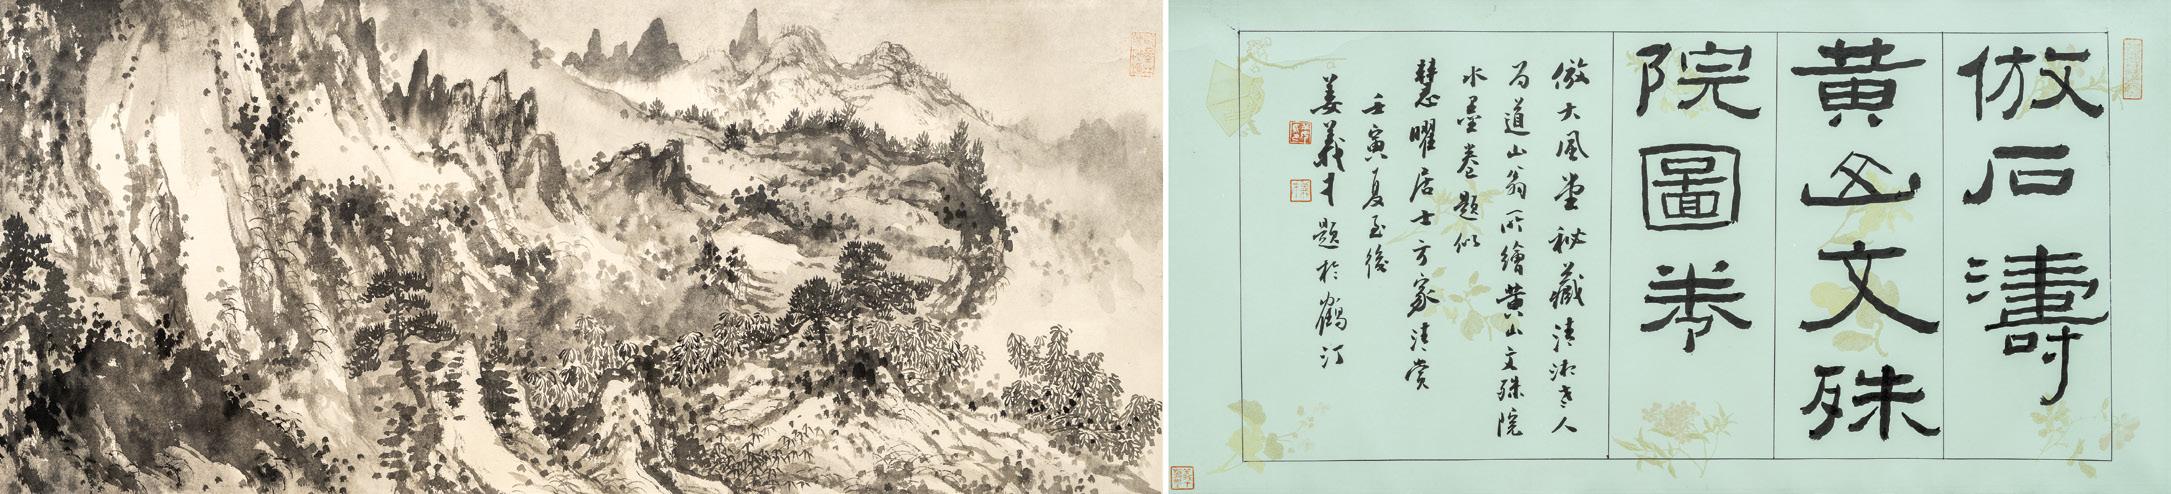 倣石濤
黃山文殊
院圖卷
倣大風堂祕藏清湘老人
為道山翁所繪黃山文殊院
水墨卷題似
慧曜居士方家清賞
壬寅夏至後
姜義才題於鶴汀